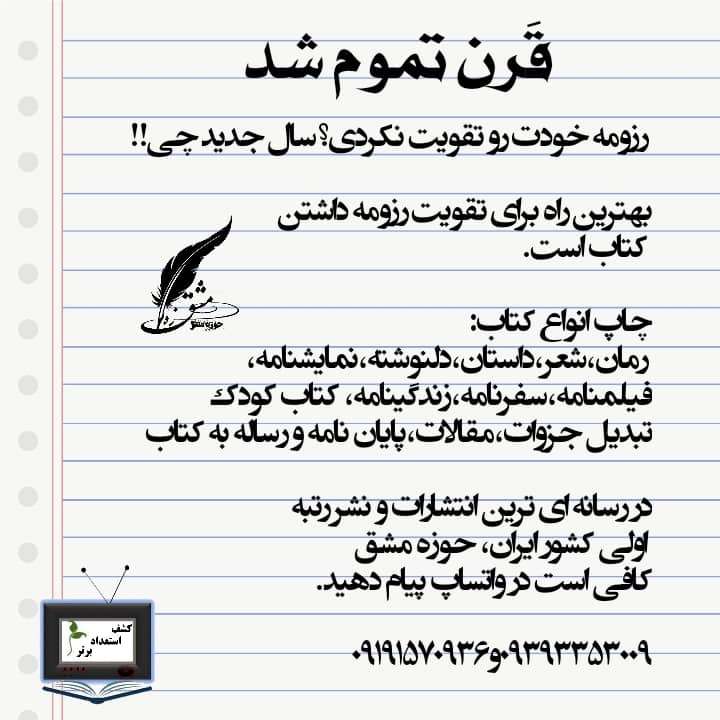 قَرن تموم شد
رزومه خودت رو تقویت نکردی؟ سال جدید چی!!
بهترین راه برای تقویت رزومه داشتن
کتاب است.
مشق
حوزه مشق
چاپ انواع کتاب:
رمان،شعر،داستان،دلنوشته،نمایشنامه،
فیلمنامه،سفرنامه،زندگینامه، کتاب کودک
تبدیل جزوات،مقالات،پایان نامه و رساله به کتاب
در رسانه ای ترین انتشارات و نشر رتبه
اولی کشور ایران، حوزه مشق
کافی است در واتساپ پیام دهید.
۰۹۳۹۳۳۵۳۰۰۹و۰۹۱۹۱۵۷۰۹۳۶
کشف
استعداد
برتر